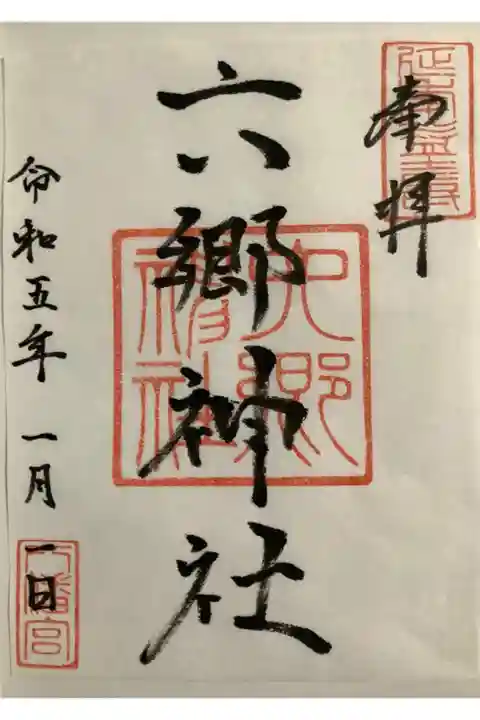 奉拝
延命益壽
六郷神社
六郷
神社
令和五年 一月 一日
八幡宮